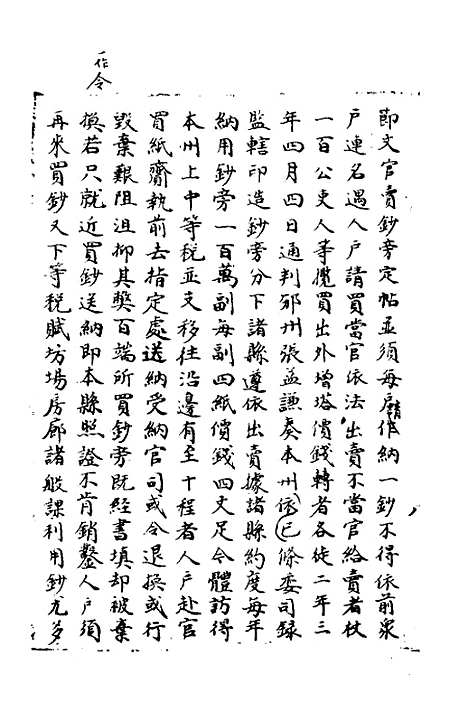 一作令
節文官賣鈔旁定帖並須每户輸作納一鈔不得依前衆
户連名遇人户請買當官依法出賣不當官給賣者杖
一百公吏人等攬買出外增搭價錢轉者各徒二年三
年四月四日通判邠州張益謙奏本州依已條委司録
監轄印造鈔旁分下諸縣遵依出賣據諸縣約度每年
納用鈔旁一百萬副每副四紙價錢四文足今體訪得
本州上中等税並支移往沿邊有至十程者人户赴官
買紙齎執前去指定處送納受納官司或令退換或行
毀棄艱阻沮抑其獘百端所買鈔旁既經書填却被棄
換若只就近買鈔送納即本縣照證不肯銷鑿人户須
再來買鈔又下等税賦坊場房廊諸般課利用鈔尤多